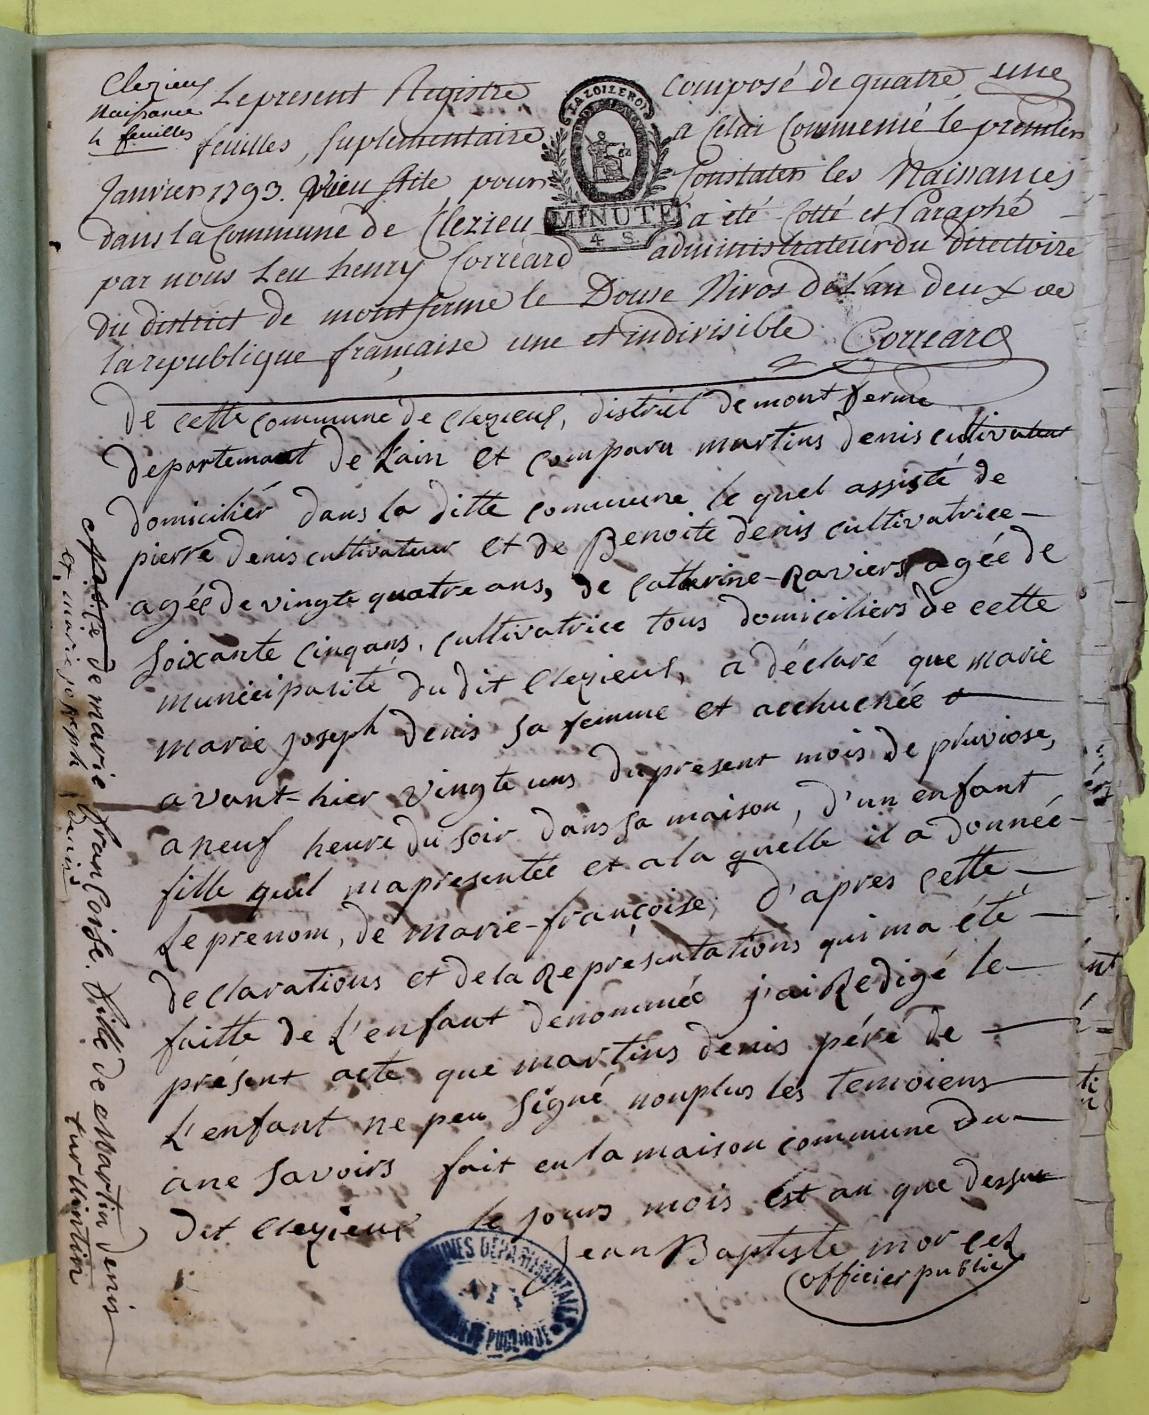 Clezieu
Naissance
4 feuilles
une
Le present Registre composé de quatre
feuilles, suplementaire a Celui Commencé le premier
Janvier 1793. Vieu stile pour Constater les Naissances
dans la Commune de Clezieu a été Cotté et Paraphé
par nous Leu henry Corréard administrateur du directoire
du district de montferme le Douse Nivos de L'an deux de
la republique française une et indivisible Correard
LA LOI LE ROI
MINUTE
4 S
De cette commune de Clezieus, district de mont ferme
departemant de Lain et comparu martins denis cultivateur
domiciliér dans la ditte commune le quel assisté de
pierre denis cultivateur et de Benoite denis cultivatrice
agéé de vingte quatre ans, de catherine-Raviers agée de
soixante cinq ans, cultivatrice tous domiciliers de cette
municiparité du dit Clezieus, a déclaré que marie
marie joseph denis sa femme et acchuchée
avant-hier vingte uns du présent mois de pluviose,
a neuf heure du soir dans sa maison, d'un enfant
fille quil mapresentée et ala quelle il a donnéé
le prenom, de marie-françoise, d'apres cette
declarations et de la Représentations qui ma été
faitte de L'enfant denommée j'ai Redigé le
présent acte que martins denis pére de
L'enfant ne peu Signé nonplus les temoiens
ane savoirs fait en la maison commune du
dit Clezieus le jours mois est an que dessus
Jean Baptiste morcel
officier public
de marie francoise. fille de Martin denis
et marie joseph denis
turluintin
ARCHIVES DÉPARTEMENTALES
AIN